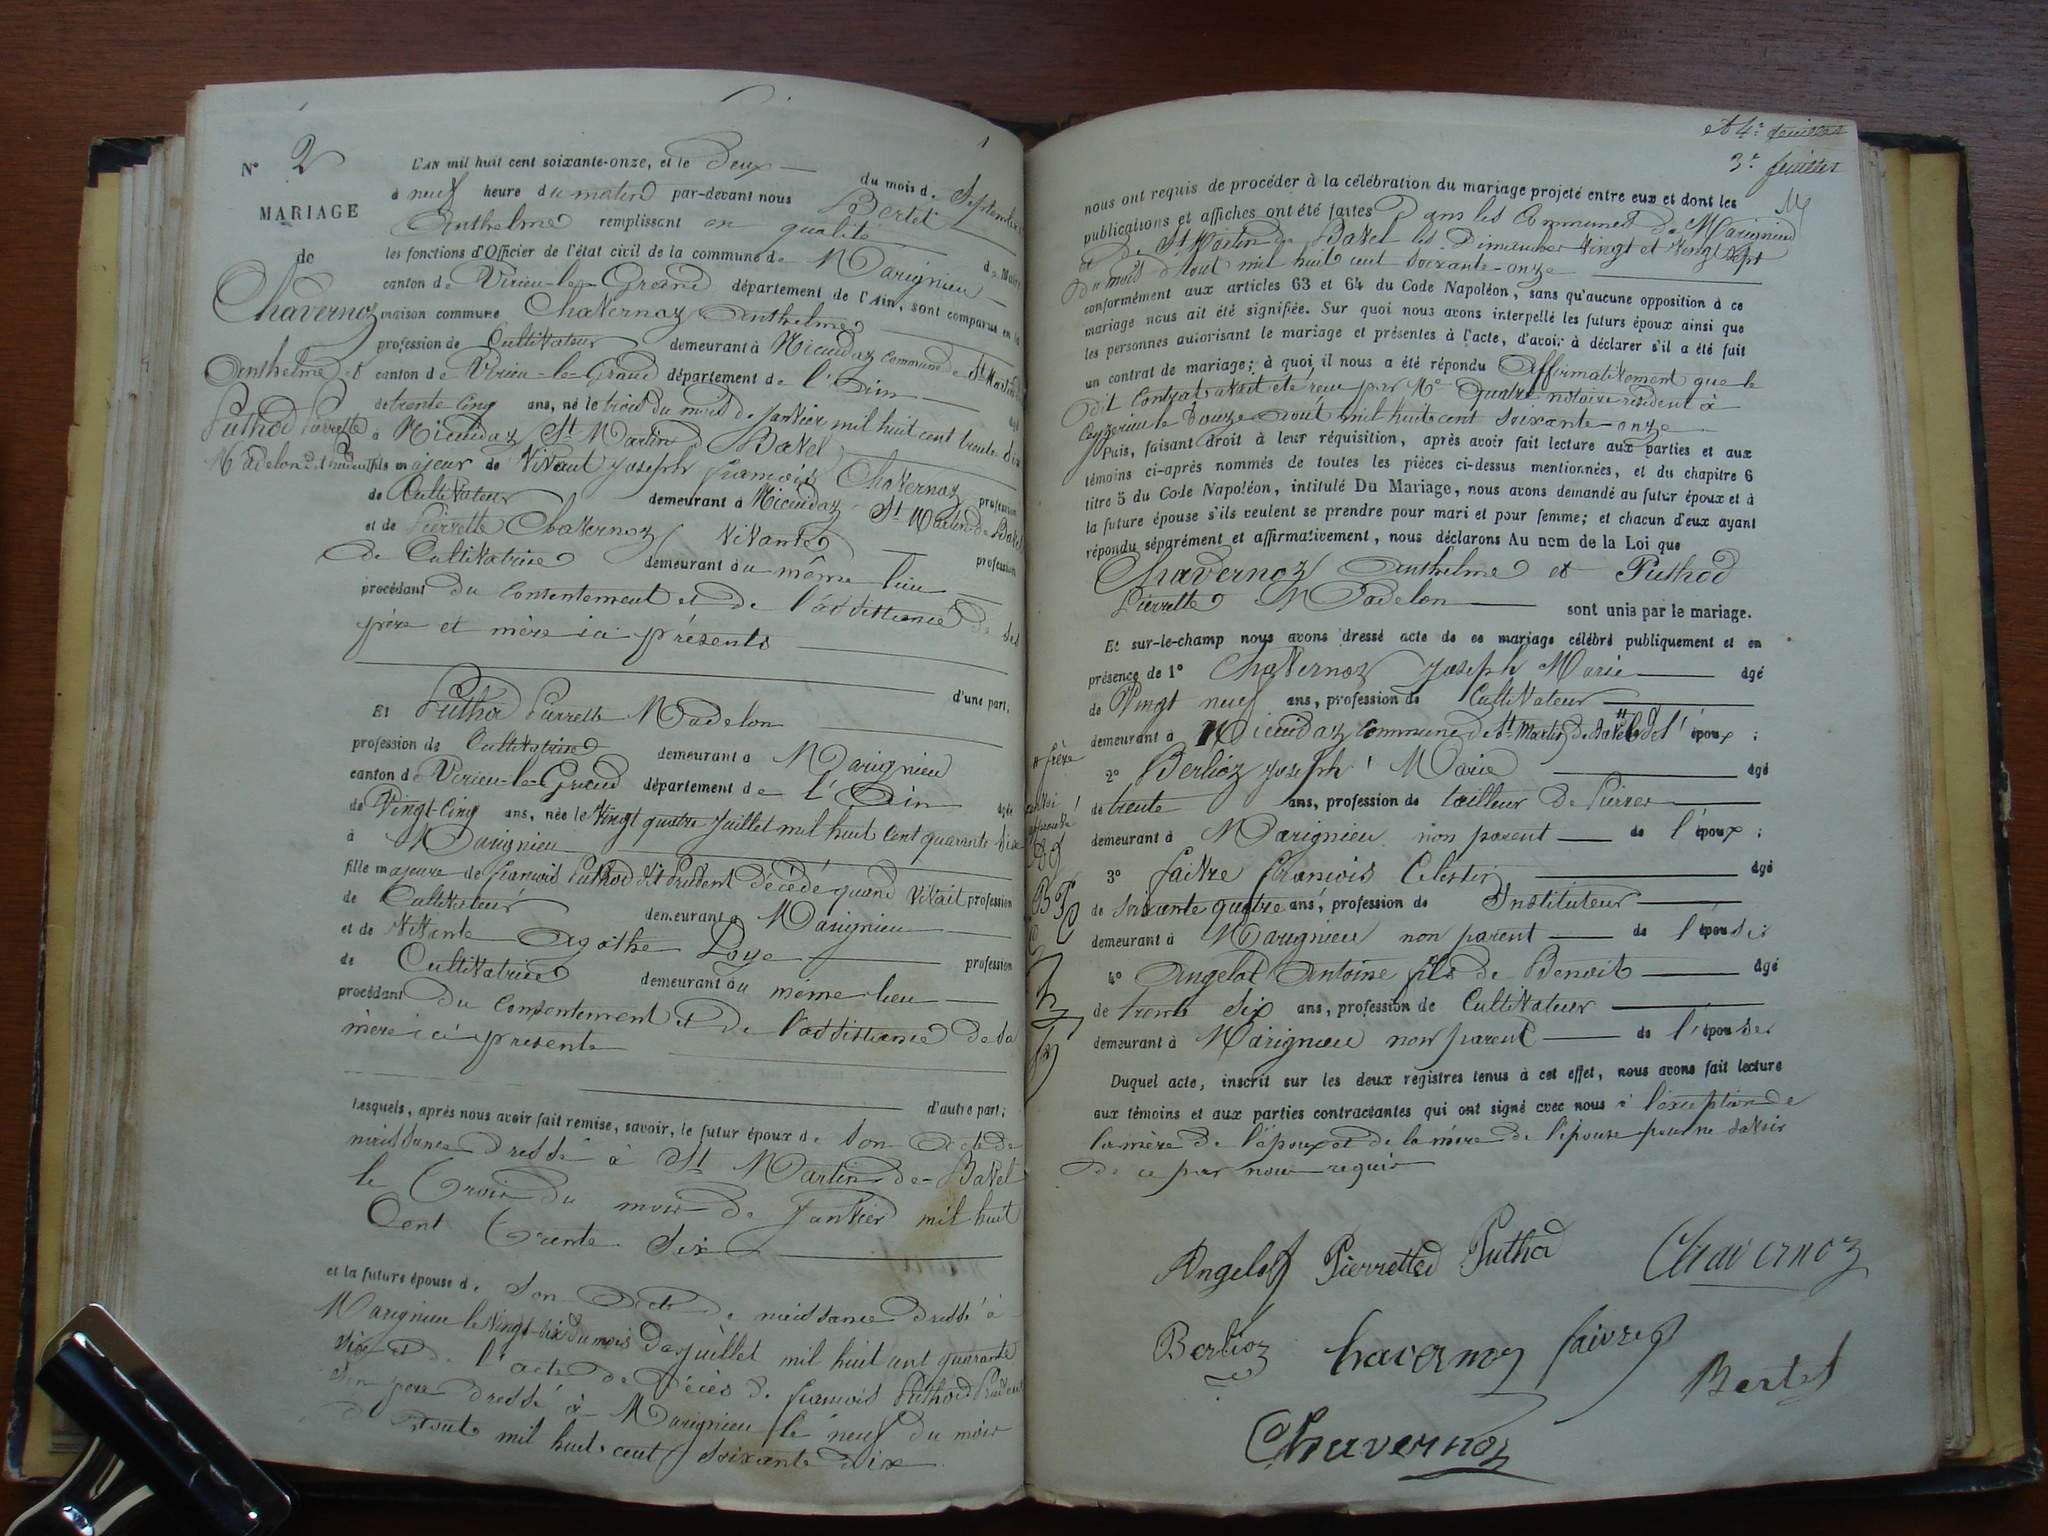 N° 2
MARIAGE
de
Chavernoz
Anthelme et
Puthod Pierrette
Madelon
L'AN mil huit cent soixante-onze, et le Deux du mois de Septembre
à neuf heure du matin par-devant nous Bertet
Anthelme remplissant en qualité de Maire
les fonctions d'Officier de l'état civil de la commune de Marignieu
canton de Virieu-le-Grand département de l'Ain, sont comparus en la
maison commune Chavernoz Anthelme
profession de Cultivateur demeurant à commune de St Martin
canton de Virieu-le-Grand département de l'Ain âgé
de trente cinq ans, né le trois du mois de Janvier mil huit cent trente Six
à St Martin de Bavel
fils majeur de Vivant Joseph françois Chavernoz profession
de Cultivateur demeurant à St Martin de Bavel
et de Pierrette Chavernoz Vivante profession
de Cultivatrice demeurant au même lieu
procédant du Consentement et de l'assistance de ses
père et mère ici présents
d'une part;
Et Puthod Pierrette Madelon
profession de Cultivatrice demeurant à Marignieu
canton de Virieu-le-Grand département de l'Ain âgée
de Vingt-Cinq ans, née le Vingt quatre Juillet mil huit Cent quarante six
à Marignieu
fille majeure de françois Puthod dit Prudent décédé quand vivait profession
de Cultivateur demeurant à Marignieu
et de Vivante Agathe Loye profession
de Cultivatrice demeurant au même lieu
procédant du Consentement et de l'assistance de sa
mère ici présente
d'autre part;
Lesquels, après nous avoir fait remise, savoir, le futur époux de Son Acte de
naissance dressé à St Martin-de-Bavel
le trois du mois de Janvier mil huit
Cent trente Six
et la future épouse de Son Acte de naissance dressé à
Marignieu le Vingt-six du mois de Juillet mil huit cent quarante
six et de l'acte de Décès de françois Puthod Prudent
son père dressé à Marignieu le neuf du mois
d'Août mil huit cent soixante dix
et 4e feuillet
3e feuillet
nous ont requis de procéder à la célébration du mariage projeté entre eux et dont les
publications et affiches ont été faites Dans les Communes de Marignieu
et de St Martin de Bavel les Dimanches Vingt et Vingt Sept
du mois d'Août mil huit cent soixante-onze
conformément aux articles 63 et 64 du Code Napoléon, sans qu'aucune opposition à ce
mariage nous ait été signifiée. Sur quoi nous avons interpellé les futurs époux ainsi que
les personnes autorisant le mariage et présentes à l'acte, d'avoir à déclarer s'il a été fait
un contrat de mariage; à quoi il nous a été répondu Affirmativement que le
dit Contrat avait été reçu par Me notaire résident à
Ceyzerieu le Douze Août mil huit cent soixante-onze
Puis, faisant droit à leur réquisition, après avoir fait lecture aux parties et aux
témoins ci-après nommés de toutes les pièces ci-dessus mentionnées, et du chapitre 6
titre 5 du Code Napoléon, intitulé Du Mariage, nous avons demandé au futur époux et à
la future épouse s'ils veulent se prendre pour mari et pour femme; et chacun d'eux ayant
répondu séparément et affirmativement, nous déclarons Au nom de la Loi que
Chavernoz Anthelme et Puthod
Pierrette Madelon sont unis par le mariage.
Et sur-le-champ nous avons dressé acte de ce mariage célébré publiquement et en
présence de 1° Chavernoz Joseph Marie âgé
de Vingt neuf ans, profession de Cultivateur
demeurant à commune de St Martin de Bavel # de l'époux;
# frère
2° Berlioz Joseph Marie âgé
de trente ans, profession de tailleur de Pierres
demeurant à Marignieu non parent de l'époux;
3° Faivre François Celestin âgé
de soixante quatre ans, profession de Instituteur
demeurant à Marignieu non parent de l'épouse;
4° Angelot Antoine fils de Benoit âgé
de trente six ans, profession de Cultivateur
demeurant à Marignieu non parent de l'épouse
Duquel acte, inscrit sur les deux registres tenus à cet effet, nous avons fait lecture
aux témoins et aux parties contractantes qui ont signé avec nous à l'exception de
la mère de l'époux et de la mère de l'épouse pour ne savoir
de ce par nous requis
Angelot Pierrette Puthod Chavernoz
Berlioz Chavernoz faivre
Bertet
Chavernoz